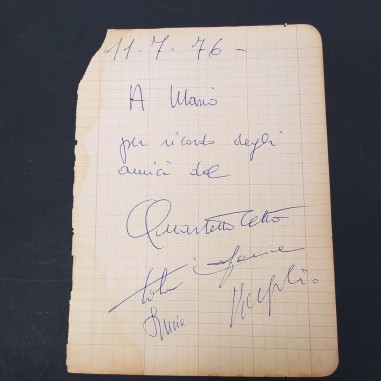 11.7.76-
A Mario
per ricordo degli
amici del
Quartetto Cetra
Tata
Lucia Virgilio